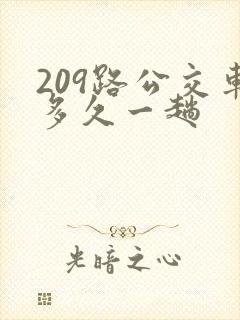 209路公交車
多久一趟
光暗之心